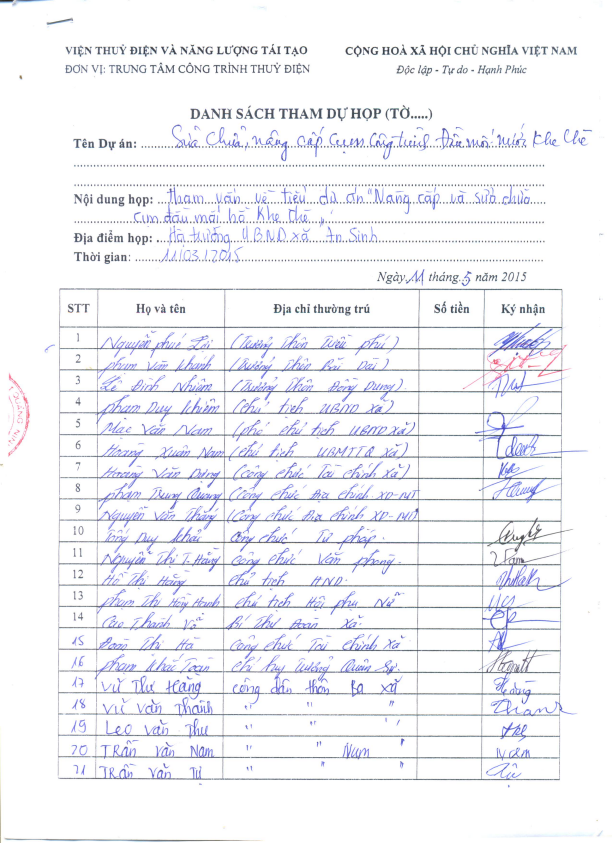 VIỆN THUỶ ĐIỆN VÀ NĂNG LƯỢNG TÁI TẠO
ĐƠN VỊ: TRUNG TÂM CÔNG TRÌNH THUỶ ĐIỆN
CỘNG HOÀ XÃ HỘI CHỦ NGHĨA VIỆT NAM
Độc lập - Tự do - Hạnh Phúc
DANH SÁCH THAM DỰ HỌP (TỜ.....)
Tên Dự án: Sửa Chữa, nâng cấp cụm công trình Đầu mối nước Khe Chè
Nội dung họp: tham vấn về tiểu dự án "Nâng cấp và sửa chữa
cụm đầu mối hồ Khe Chè"
Địa điểm họp: Hội trường UBND xã An Sinh
Thời gian: 11/03/2015
Ngày 11 tháng 5 năm 2015
STT Họ và tên Địa chỉ thường trú Số tiền Ký nhận
1 Nguyễn phúc (Trưởng thôn phú)
2 phạm Văn Khánh (Trưởng thôn Bãi Dài)
3 Lê Đình Nhiệm (Trưởng thôn Đồng Dung)
4 phạm Duy Khiêm (chủ tịch UBND xã)
5 Mạc Văn Nam (phó chủ tịch UBND xã)
6 Hoàng Xuân Nam (chủ tịch UBMTTQ xã)
7 Hoàng Văn Dũng (Công chức Tài chính xã)
8 phạm Trung Quang (Công chức Địa chính XD-MT
9 Nguyễn Văn Thắng (Công chức Địa chính XD-MT)
10 Tống Duy Khải công chức Tư pháp.
11 Nguyễn Thị T. Hằng công chức Văn phòng.
12 Hồ Thị Hằng chủ tịch HND.
13 phạm Thị Hồng Hạnh chủ tịch Hội phụ Nữ
14 Cao Thanh Bí thư Đoàn Xã.
15 Đoàn Thị Hà Công chức Tài chính Xã
16 phạm Khắc Toàn chỉ huy Trưởng Quân Sự.
17 VŨ Thư Hằng công dân thôn Ba xã
18 VŨ văn Thành " " "
19 Leo văn Thư " " "
20 TRẦN văn Nam " " Nam
21 TRẦN VĂN TỰ " " "
QUẢNG NINH